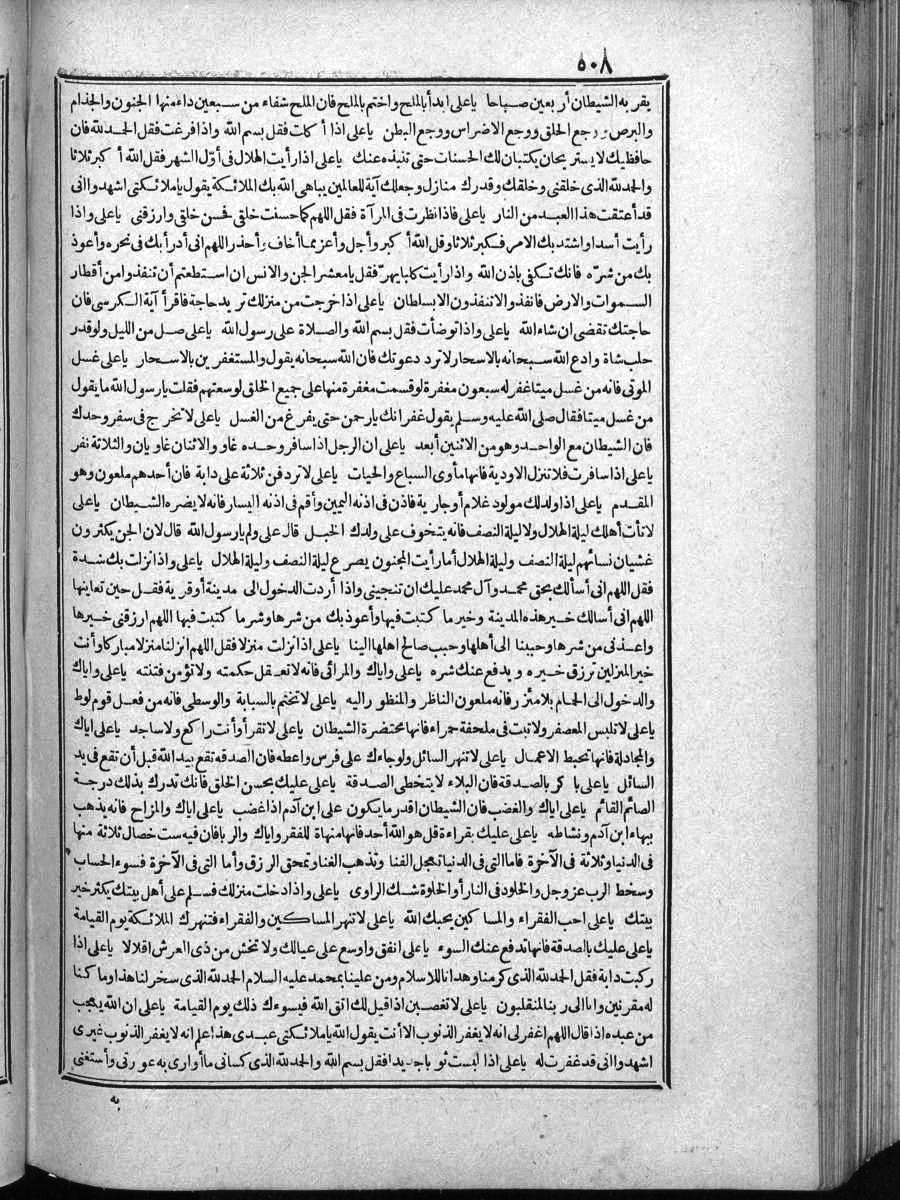 ٥٠٨
يقر به الشيطان أربعين صباحا ياعلى ابدأ بالملح واختم بالملح فان الملح شفاء من سبعين داء منها الجنون والجذام
والبرص ووجع الحلق ووجع الاضراس ووجع البطن ياعلى اذا أكلت فقل بسم الله واذا فرغت فقل الحمد لله فان
حافظيك لا يستريحان يكتبان لك الحسنات حتى تنبذه عنك ياعلى اذا رأيت الهلال فى أوّل الشهر فقل الله أكبر ثلاثا
والحمد لله الذى خلقنى وخلقك وقدرك منازل وجعلك آية للعالمين يباهى الله بك الملائكة يقول ياملائكتى اشهدوا انى
قد أعتقت هذا العبد من النار ياعلى فاذا نظرت فى المرآة فقل اللهم كما حسنت خلقى فحسن خلقى وارزقنى ياعلى واذا
رأيت أسدا واشتد بك الامر فكبر ثلاثا وقل الله أكبر وأجل وأعز مما أخاف وأحذر اللهم انى أدرأ بك فى نحره وأعوذ
بك من شرّه فانك تكفى باذن الله واذا رأيت كلبا يهرّ فقل يامعشر الجن والانس ان استطعتم أن تنفذوا من أقطار
السموات والارض فانفذوا لا تنفذون الا بسلطان ياعلى اذا خرجت من منزلك تريد حاجة فاقرأ آية الكرسى فان
حاجتك تقضى ان شاء الله ياعلى واذا توضأت فقل بسم الله والصلاة على رسول الله ياعلى صل من الليل ولو قدر
حلب شاة وادع الله سبحانه بالاسحار لا ترد دعوتك فان الله سبحانه يقول والمستغفرين بالاسحار ياعلى غسل
الموتى فانه من غسل ميتا غفر له سبعون مغفرة لو قسمت مغفرة منها على جميع الخلق لوسعتهم فقلت يارسول الله ما يقول
من غسل ميتا فقال صلى الله عليه وسلم يقول غفرانك يارحمن حتى يفرغ من الغسل ياعلى لا تخرج فى سفر وحدك
فان الشيطان مع الواحد وهو من الاثنين أبعد ياعلى ان الرجل اذا سافر وحده غاو والاثنان غاويان والثلاثة نفر
ياعلى اذا سافرت فلا تنزل الاودية فانها مأوى السباع والحيات ياعلى لا تردفن ثلاثة على دابة فان أحدهم ملعون وهو
المقدم ياعلى اذا ولد لك مولود غلام أو جارية فاذن فى اذنه اليمين وأقم فى اذنه اليسار فانه لا يضره الشيطان ياعلى
لا تأت أهلك ليلة الهلال ولا ليلة النصف فانه يتخوف على ولدك الخبل قال على ولم يارسول الله قال لان الجن يكثرون
غشيان نسائهم ليلة النصف وليلة الهلال أما رأيت المجنون يصرع ليلة النصف وليلة الهلال ياعلى واذا نزلت بك شدة
فقل اللهم انى أسألك بحق محمد وآل محمد عليك ان تنجينى واذا أردت الدخول الى مدينة أو قرية فقل حين تعاينها
اللهم انى أسالك خير هذه المدينة وخير ما كتبت فيها وأعوذ بك من شرها وشر ما كتبت فيها اللهم ارزقنى خيرها
واعذنى من شرها وحببنا الى أهلها وحبب صالح اهلها الينا ياعلى اذا نزلت منزلا فقل اللهم انزلنا منزلا مباركا وأنت
خير المنزلين ترزق خيره ويدفع عنك شره ياعلى واياك والمرائى فانه لا تعقل حكمته ولا تؤمن فتنته ياعلى واياك
والدخول الى الحمام بلا مئزر فانه ملعون الناظر والمنظور اليه ياعلى لا تختم بالسبابة والوسطى فانه من فعل قوم لوط
ياعلى لا تلبس المعصفر ولا تبت فى ملحفة حمراء فانها محتضرة الشيطان ياعلى لا تقرأ وأنت راكع ولا ساجد ياعلى اياك
والمجادلة فانها تحبط الاعمال ياعلى لا تنهر السائل ولو جاءك على فرس واعطه فان الصدقه تقع بيد الله قبل أن تقع فى يد
السائل ياعلى باكر بالصدقة فان البلاء لا يتخطى الصدقة ياعلى عليك بحسن الخلق فانك تدرك بذلك درجة
الصائم القائم ياعلى اياك والغضب فان الشيطان اقدر ما يكون على ابن آدم اذا غضب ياعلى اياك والمزاح فانه يذهب
ببهاء ابن آدم ونشاطه ياعلى عليك بقراءة قل هو الله أحد فانها منهاة للفقر واياك والربا فان فيه ست خصال ثلاثة منها
فى الدنيا وثلاثة فى الآخرة فاما التى فى الدنيا تعجل الفنا وتذهب الغنا وتمحق الرزق وأما التى فى الآخرة فسوء الحساب
وسخط الرب عز وجل والخلود فى النار أو الخلوة شك الراوى ياعلى واذا دخلت منزلك فسلم على أهل بيتك يكثر خير
بيتك ياعلى احب الفقراء والمساكين يحبك الله ياعلى لا تنهر المساكين والفقراء فتنهرك الملائكة يوم القيامة
ياعلى عليك بالصدقة فانها تدفع عنك السوء ياعلى انفق واوسع على عيالك ولا تخش من ذى العرش اقلالا ياعلى اذا
ركبت دابة فقل الحمد لله الذى كرمنا وهدانا للاسلام ومن علينا بمحمد عليه السلام الحمد لله الذى سخر لنا هذا وما كنا
له مقرنين وانا الى ربنا لمنقلبون ياعلى لا تغضبن اذا قيل لك اتق الله فيسوءك ذلك يوم القيامة ياعلى ان الله يعجب
من عبده اذا قال اللهم اغفر لى انه لا يغفر الذنوب الا أنت يقول الله ياملائكتى عبدى هذا علم انه لا يغفر الذنوب غيرى
اشهدوا انى قد غفرت له ياعلى اذا لبست ثوبا جديدا فقل بسم الله والحمد لله الذى كسانى ما أوارى به عورتى وأستغنى
به